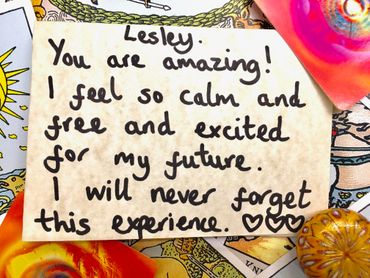 Lesley.
You are amazing!
I feel so calm and
free and excited
for my future.
I will never forget
this experience. ♡♡♡